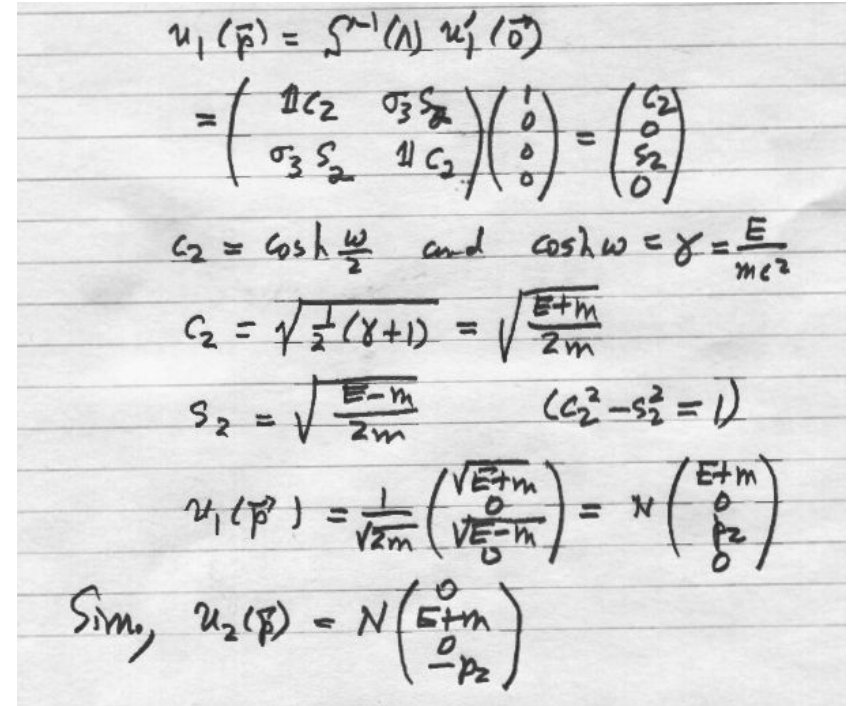 u₁(p⃗) = S⁻¹(Λ) u₁′(0⃗)
= ( 𝟙c₂ σ₃s₂ ; σ₃s₂ 𝟙c₂ ) ( 1 ; 0 ; 0 ; 0 ) = ( c₂ ; 0 ; s₂ ; 0 )
c₂ = cosh ω/2 and cosh ω = γ = E/mc²
c₂ = √(½(γ+1)) = √((E+m)/2m)
s₂ = √((E−m)/2m) (c₂² − s₂² = 1)
u₁(p⃗) = 1/√2m ( √E+m ; 0 ; √E−m ; 0 ) = N ( E+m ; 0 ; p_z ; 0 )
Sim., u₂(p⃗) = N ( 0 ; E+m ; 0 ; −p_z )